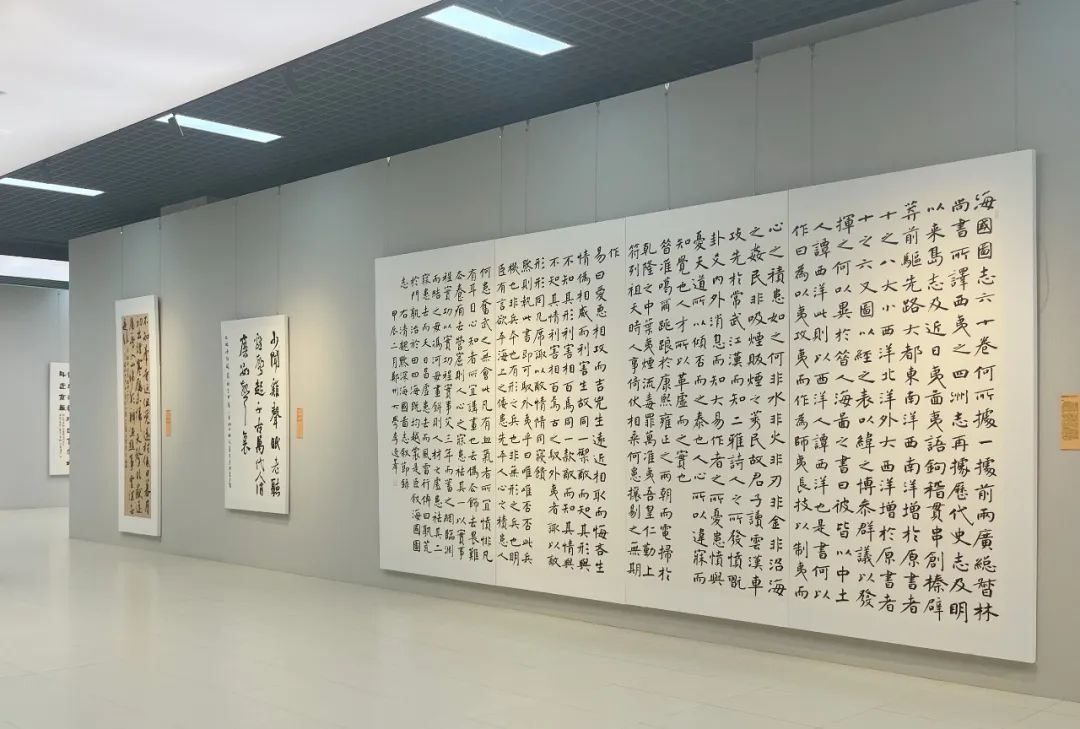 海國圖志六十卷何所據一據前兩廣總督林
尚書所譯西夷之四洲志再據歷代史志及明
以來島志及近日夷圖夷語鉤稽貫串創榛辟
莽前驅先路大都東南洋西南洋增於原書者
十之八大小西洋北洋外大西洋增於原書者
十之六又圖以經之表以緯之博參群議以發
揮之何以異於昔人海圖之書曰彼皆以中土
人譚西洋此則以西洋人譚西洋也是書何以
作曰為以夷攻夷而作為師夷長技以制夷而
心之積患如之何非水非火非刃非金非沿海
之姦民非吸煙販煙之莠民故君子讀雲漢車
攻先於常武江漢而知二雅詩人之所發憤翫
卦爻內外消息而知大易作者之所憂患憤與
憂天道所以傾否而之泰也人心所以違寐而
知覺也人才所以革虛而之實也
昔準噶爾跳踉於康熙雍正之兩朝而電掃於
乾隆之中葉夷煙流毒罪萬準夷吾皇仁勤上
符列祖天時人事倚伏相乘何患攘剔之無期
作
易曰愛惡相攻而吉凶生遠近相取而悔吝生
情偽相感而利害生故同一禦敵而知其形與
不知其形利害相百焉同一款敵而知其情與
不知其情利害相百焉古之馭外夷者諏以敵
形形同几席諏以敵情情同寢饋
然則執此書即可馭外夷乎曰唯唯否否此兵
機也非兵本也有形之兵也非無形之兵也明
臣有言欲平海上之倭患先平人心之積患人
何患奮武之無會此凡有血氣者所宜憤悱凡
有耳目心知者所宜講畫也去偽去飾去畏難
去養癰去營窟則人心之寐患祛其一以實事
程實功以實功程實事艾三年而蓄之網臨淵
而結之毋馮河毋畫餅則人材之虛患祛其二
寐患去而天日昌虛患去而風雷行傳曰孰荒
於門孰治於田四海既均越裳是臣敘海國圖
志 右清魏默深海國圖志敘節錄
甲辰二月鄭州大學李逸峰
少聞雞聲眠老聽
雞聲起千古萬代人消
磨數聲裏